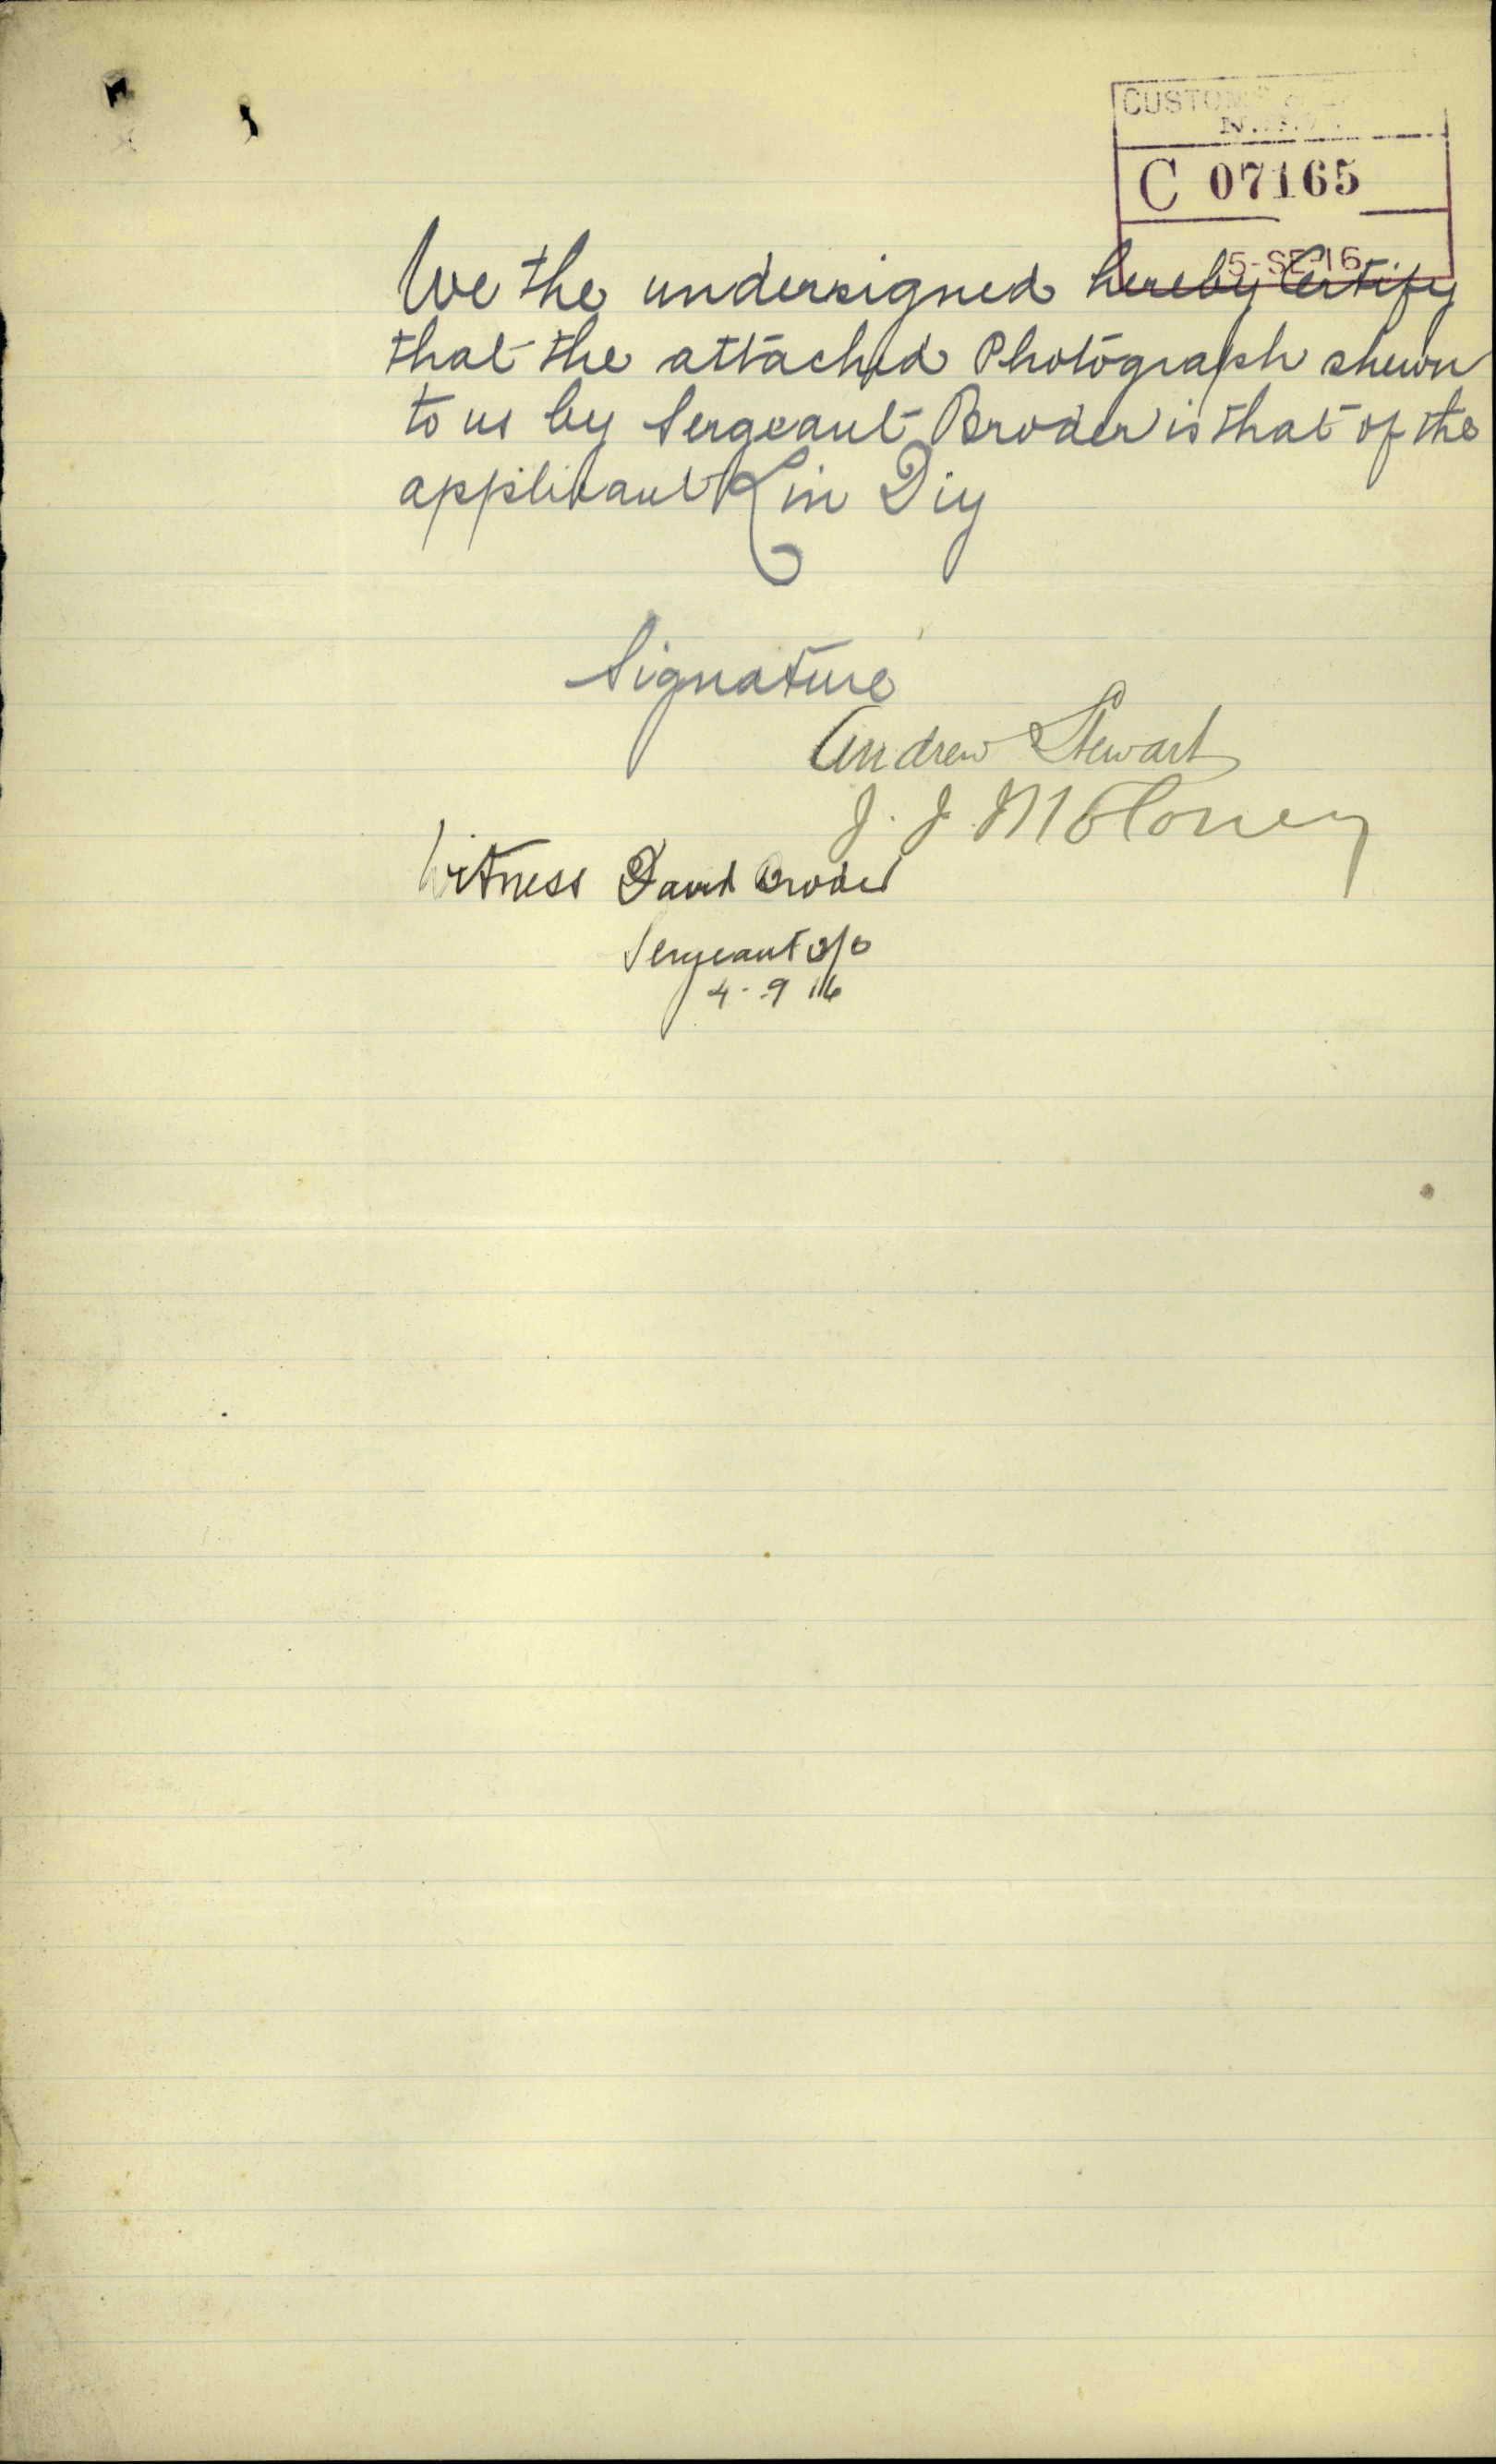 CUSTOMS
C 07165
5-SE-16
We the undersigned hereby Certify
that the attached Photograph shewn
to us by Sergeant Broder is that of the
applicant Lin Diy
Signature
Andrew Stewart
J. J. Moloney
Witness David Broder
Sergeant
4-9 16